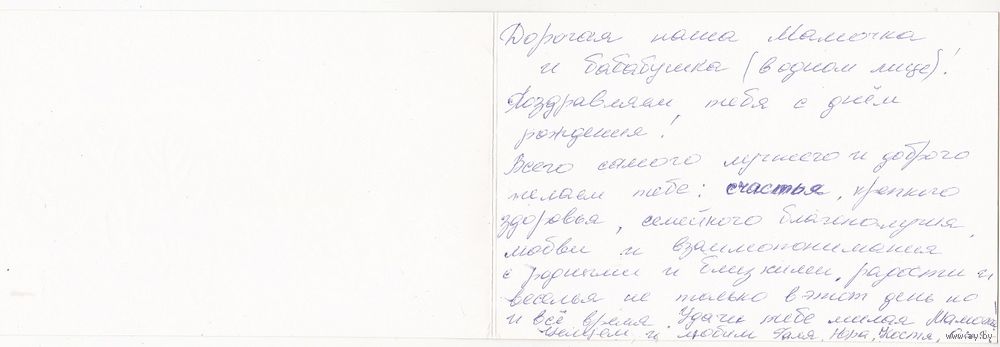 Дорогая наша Мамочка
и бабабушка (в одном лице)!
Поздравляем тебя с днём
рождения!
Всего самого лучшего и доброго
желаем тебе: счастья, крепкого
здоровья, семейного благополучия,
любви и взаимопонимания
с родными и близкими, радости и
веселья не только в этот день но
и всё время. Удачи тебе милая Мамочка
Целуем, и любим Галя, Юра, Костя,
www.ay.by